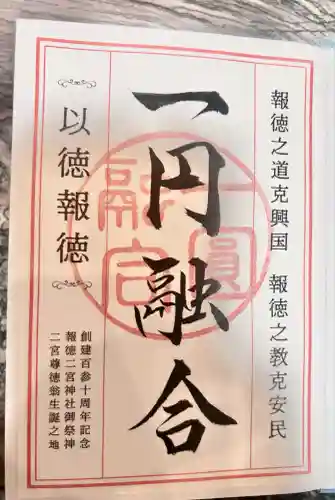 報徳之道克興国　報徳之教克安民
一円融合
以徳報徳
創建百参十周年記念
報徳二宮神社御祭神
二宮尊徳翁生誕之地
一圓融合